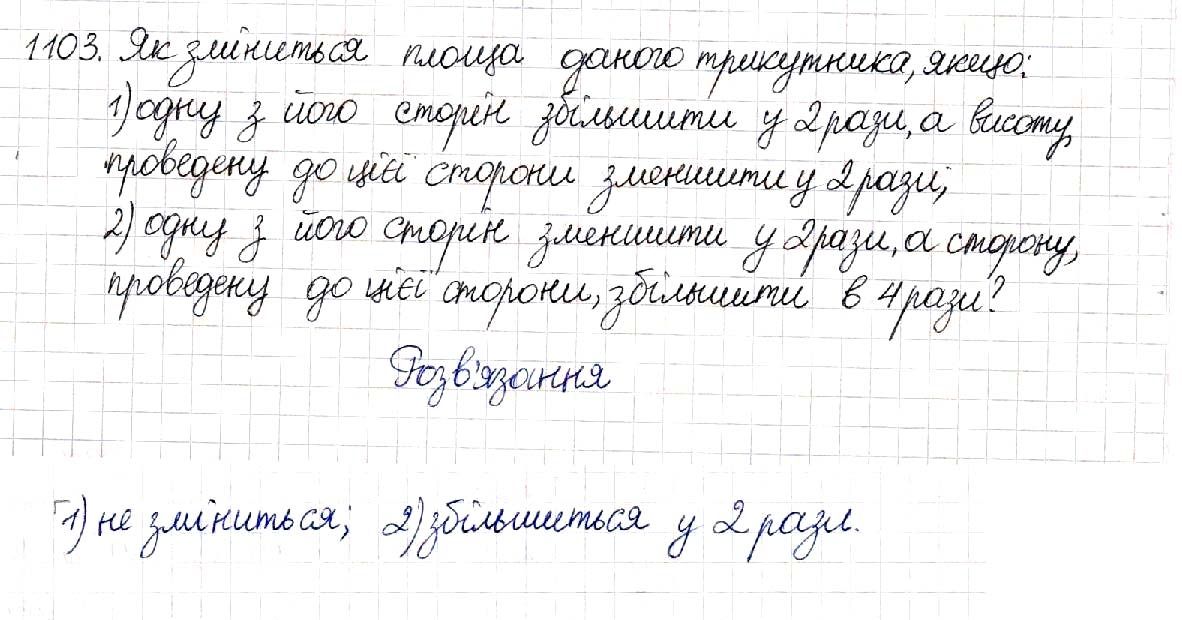 1103. Як зміниться площа даного трикутника, якщо:
1) одну з його сторін збільшити у 2 рази, а висоту,
проведену до цієї сторони зменшити у 2 рази;
2) одну з його сторін зменшити у 2 рази, а сторону,
проведену до цієї сторони, збільшити в 4 рази?
Розв'язання
1) не зміниться; 2) збільшиться у 2 рази.